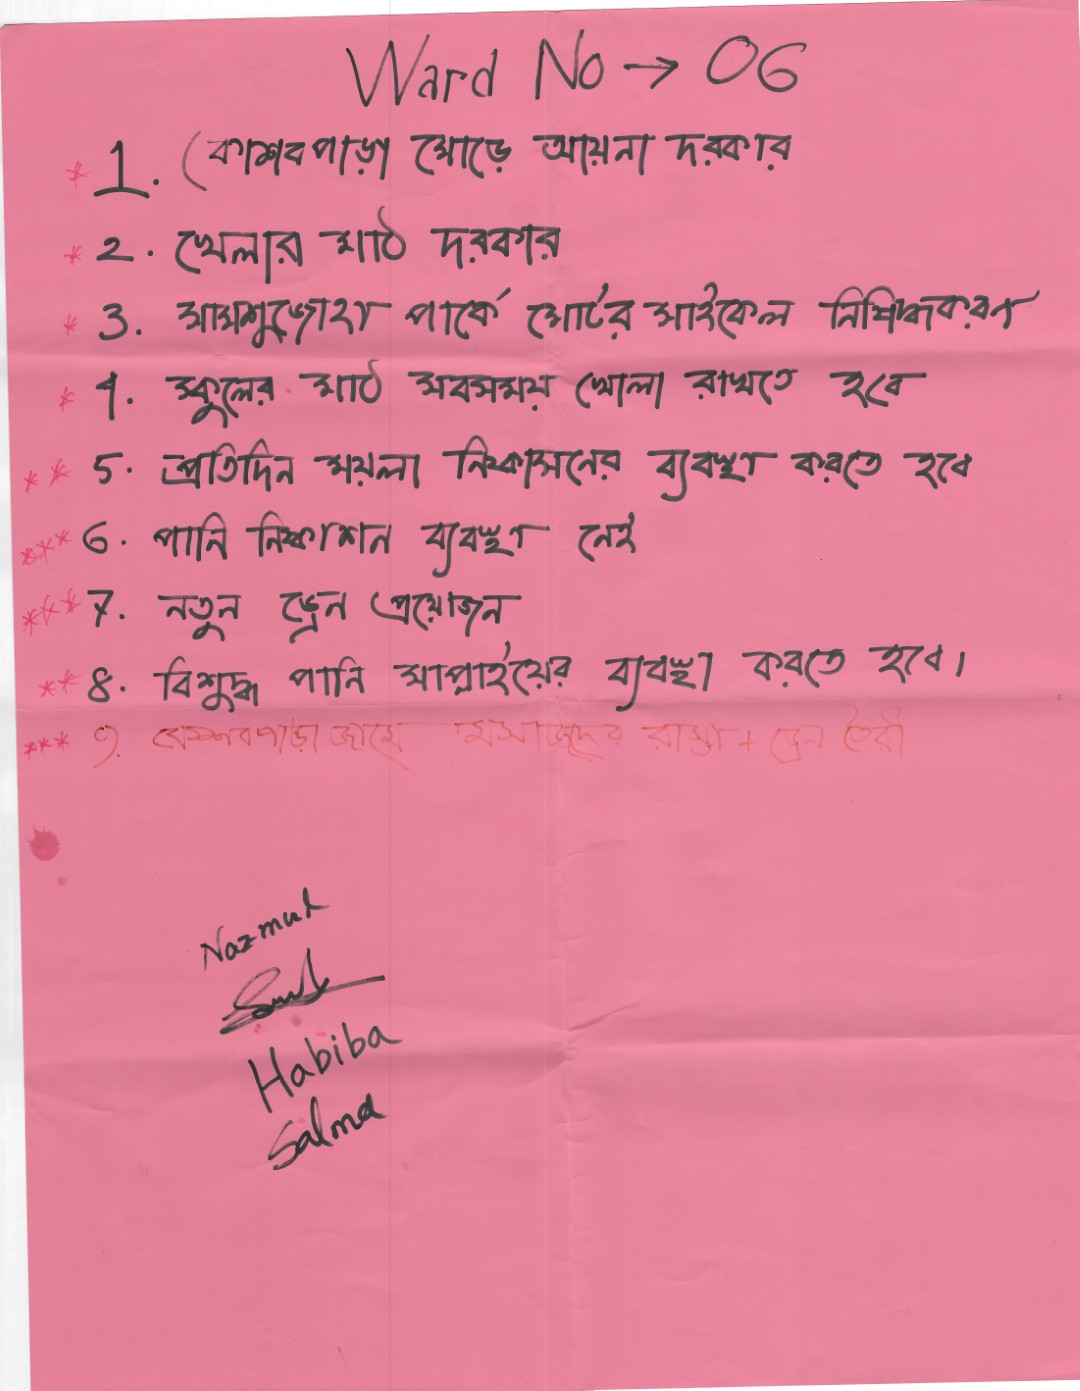 Ward No → 06
* 1. (কাশবপাড়া মোড়ে আয়না দরকার
* ২. খেলার মাঠ দরকার
* 3. সামশুজ্জোহা পার্কে মোর্টর সাইকেল নিশিদ্ধকরণ
* 9. স্কুলের মাঠ সবসময় খোলা রাখতে হবে
** 5. প্রতিদিন ময়লা নিষ্কাসনের ব্যবস্থা করতে হবে
*** 6. পানি নিষ্কাশন ব্যবস্থা নেই
*** 7. নতুন ড্রেন প্রয়োজন
** 8. বিশুদ্ধ পানি সাপ্লাইয়ের ব্যবস্থা করতে হবে।
*** 9. জামে মসজিদের রাস্তা + ড্রেন তৈরী
Nazmul
Habiba
Salma